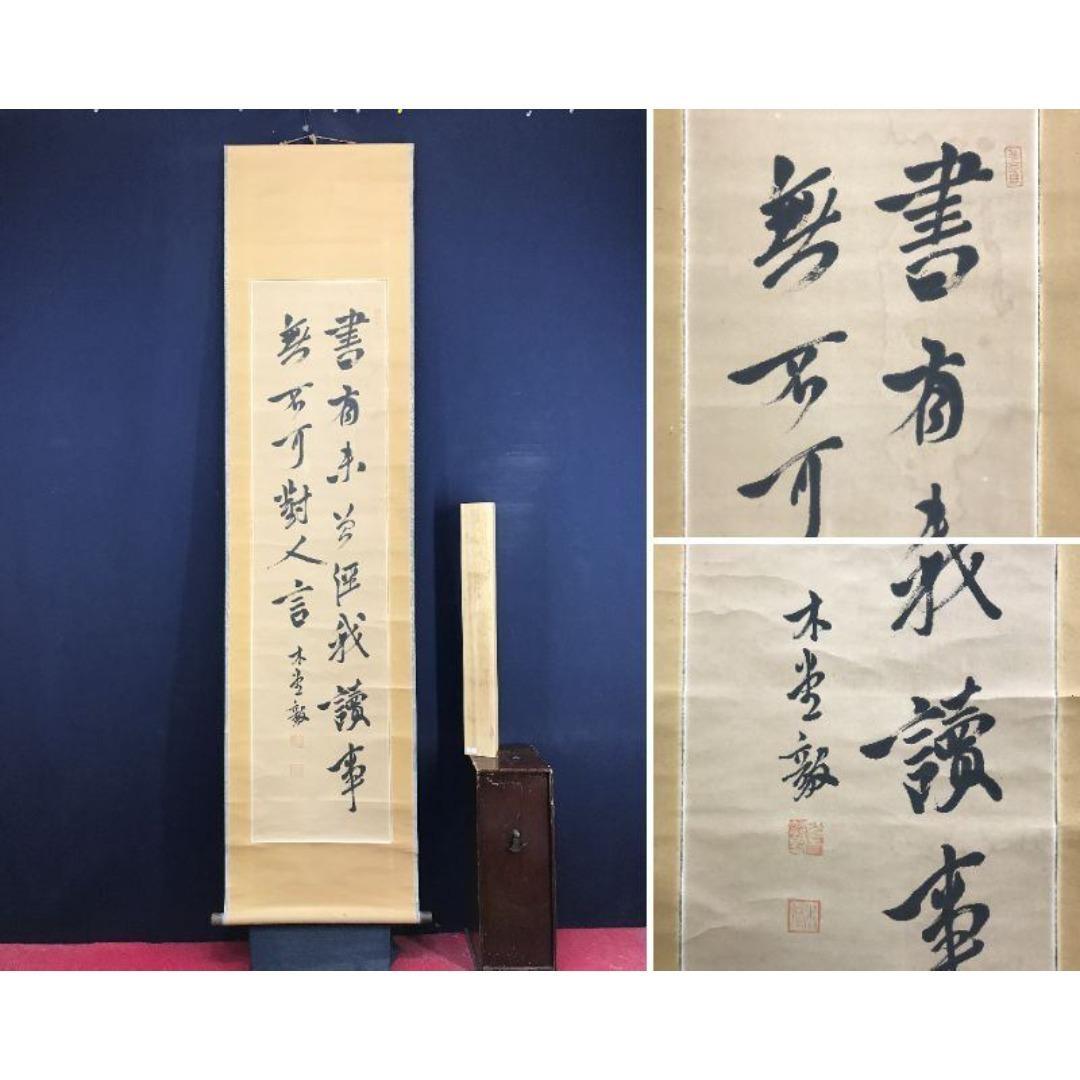 書有未曾經我讀事
無不可對人言
木堂毅
書有未
無不可
我讀事
木堂毅